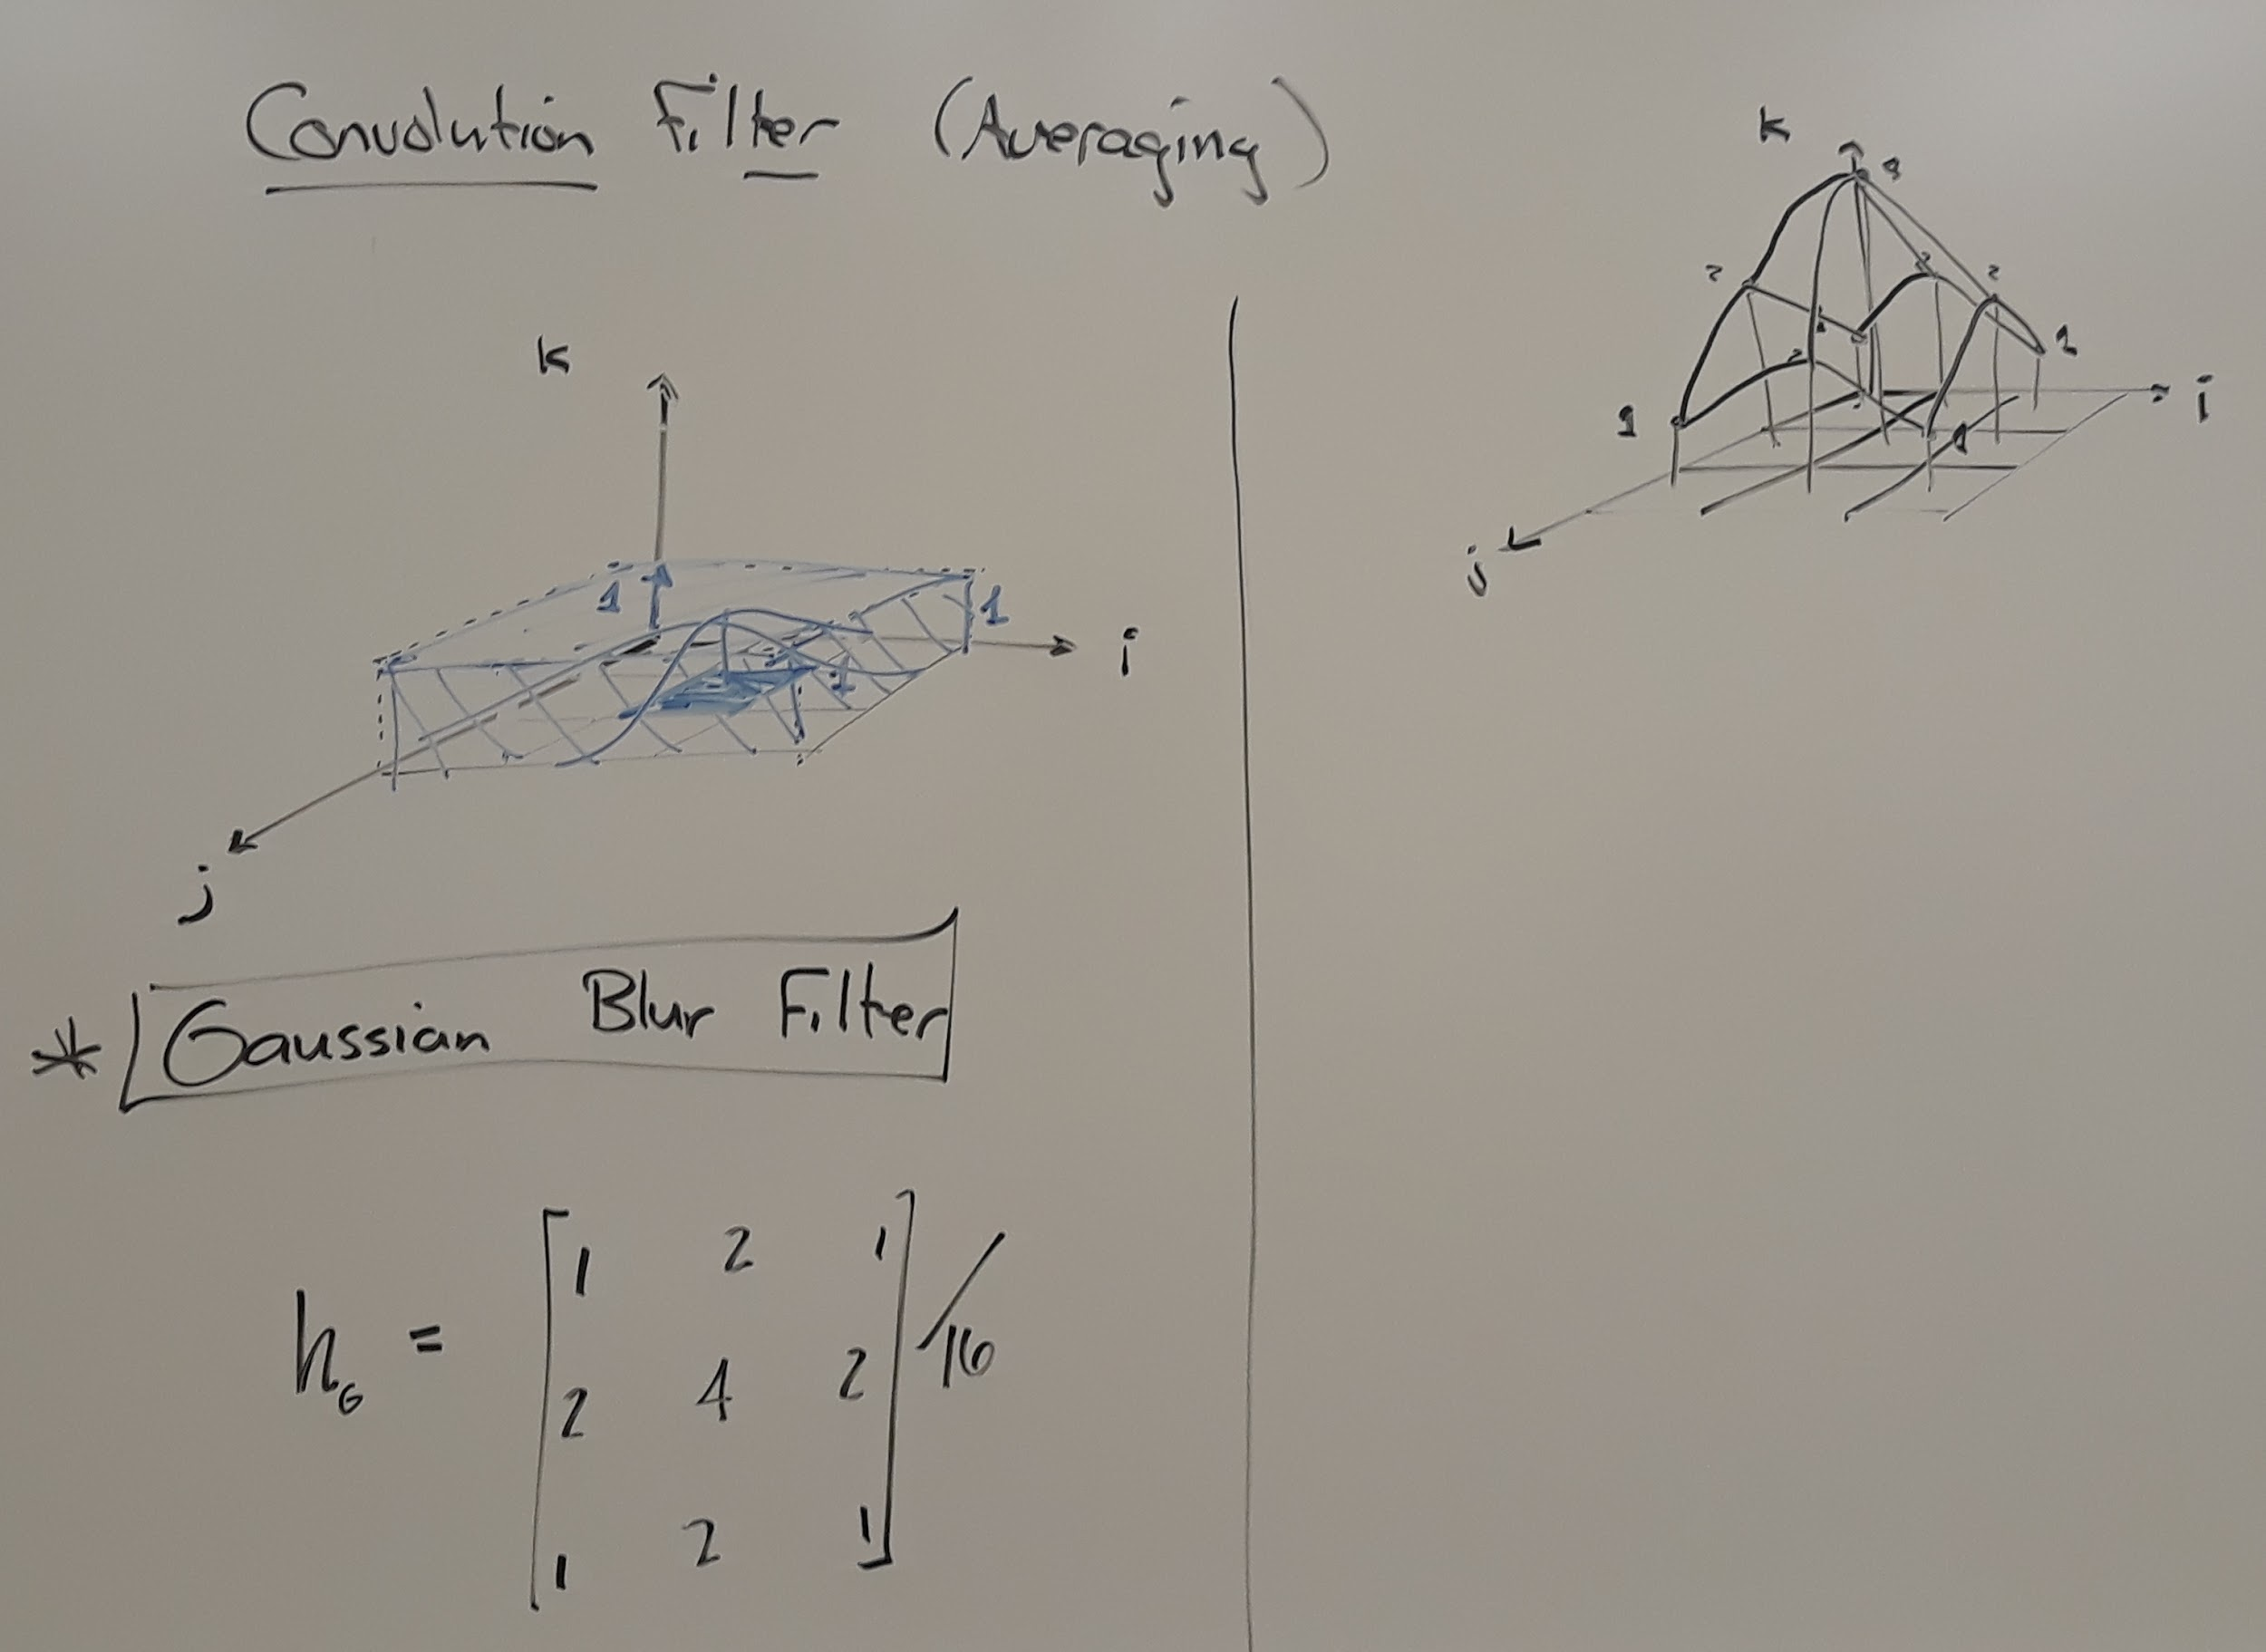 Convolution Filter (Averaging)
k
1
1
1
i
j
* Gaussian Blur Filter
h_G = [1 2 1
2 4 2
1 2 1] / 16
k
2
2
2
2
1
1
i
j